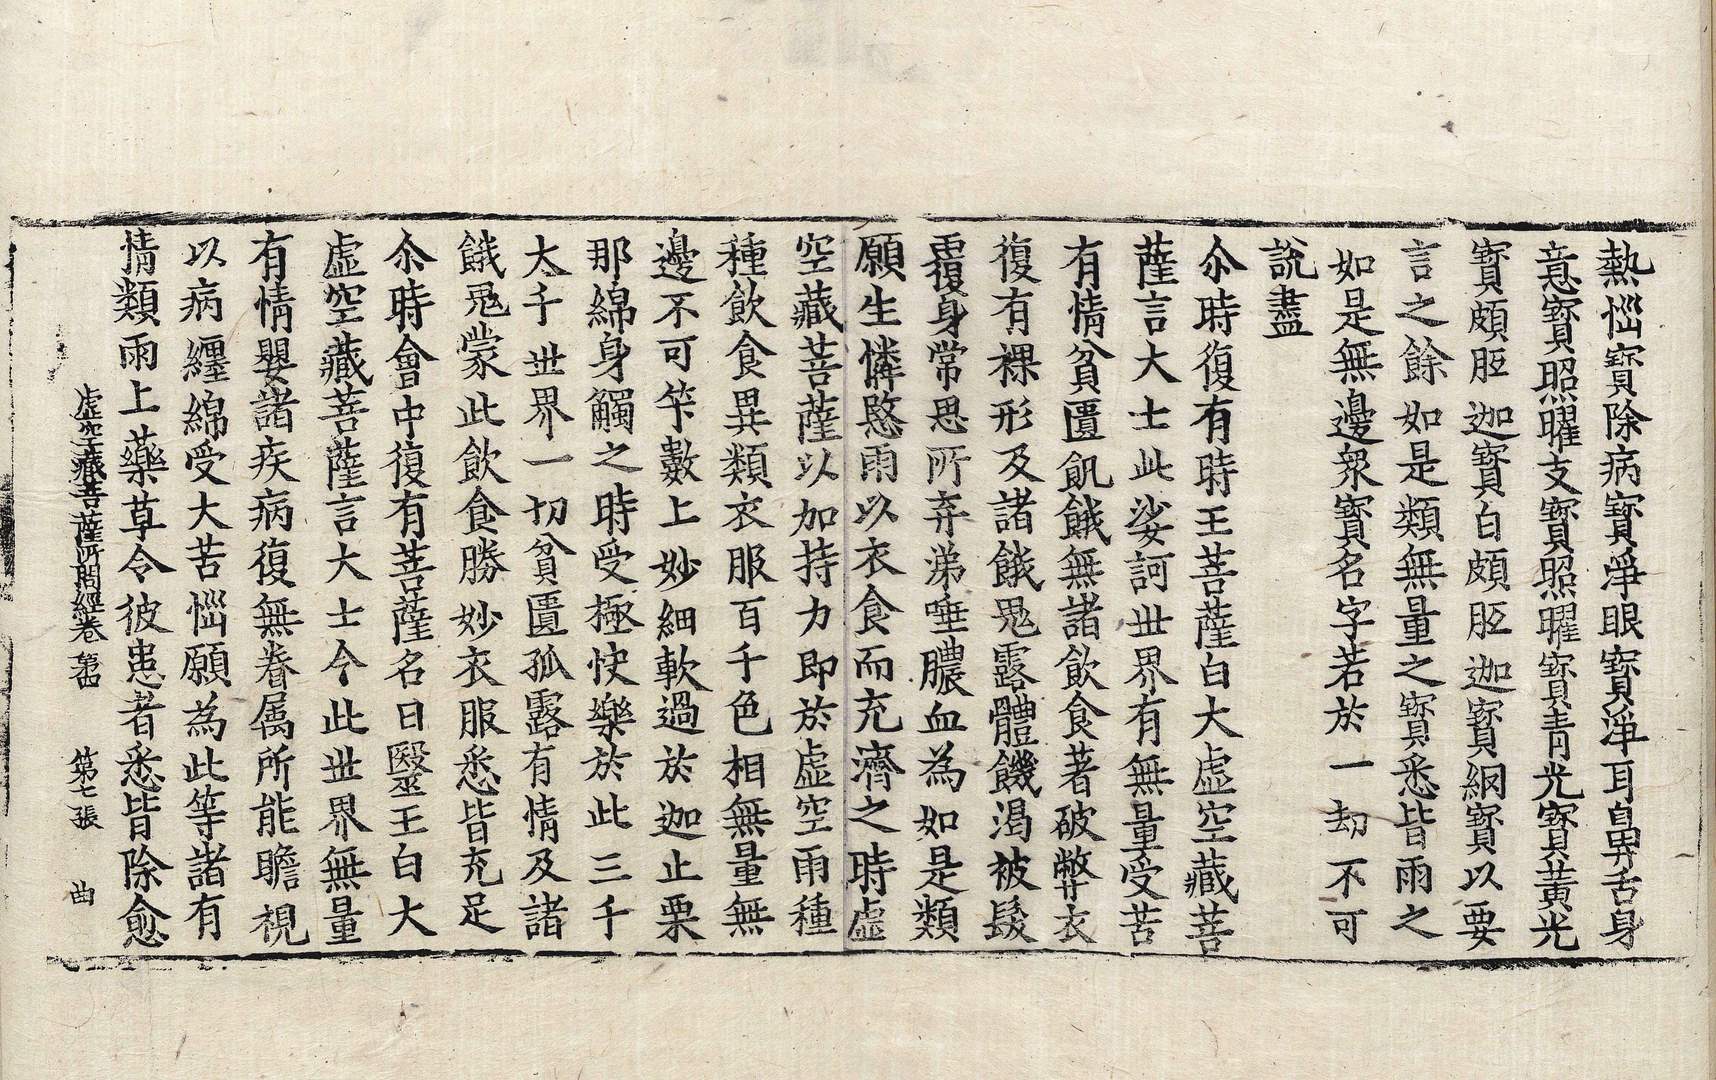 熱惱寶除病寶淨眼寶淨耳鼻舌身
意寶照曜支寶照曜寶青光寶黃光
寶頗胝迦寶白頗胝迦寶網寶以要
言之餘如是類無量之寶悉皆雨之
如是無邊衆寶名字若於一劫不可
說盡
尒時復有時王菩薩白大虛空藏菩
薩言大士此娑訶世界有無量受苦
有情貧匱飢餓無諸飲食著破弊衣
復有裸形及諸餓鬼露體饑渴被髮
覆身常思所弃涕唾膿血為如是類
願生憐愍雨以衣食而充濟之時虛
空藏菩薩以加持力即於虛空雨種
種飲食異類衣服百千色相無量無
邊不可筭數上妙細軟過於迦止栗
那綿身觸之時受極快樂於此三千
大千世界一切貧匱孤露有情及諸
餓鬼蒙此飲食勝妙衣服悉皆充足
尒時會中復有菩薩名曰醫王白大
虛空藏菩薩言大士今此世界無量
有情嬰諸疾病復無眷属所能瞻視
以病纏綿受大苦惱願為此等諸有
情類雨上藥草令彼患者悉皆除愈
虛空藏菩薩所問經卷第四 第七張 曲